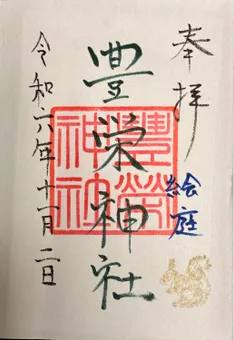 奉拝
絵庭
豊栄神社
豊榮神社
令和六年十一月二日